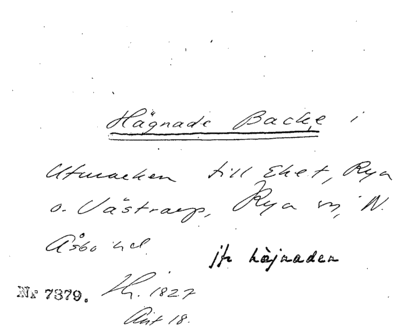 Hägnade Backe i
Utmarken till Eket, Rya
o. Västraup, Rya sn, N.
Åsbo hd.
jfr häjnaden
Nr 7379. Th. 1827
Akt 18.